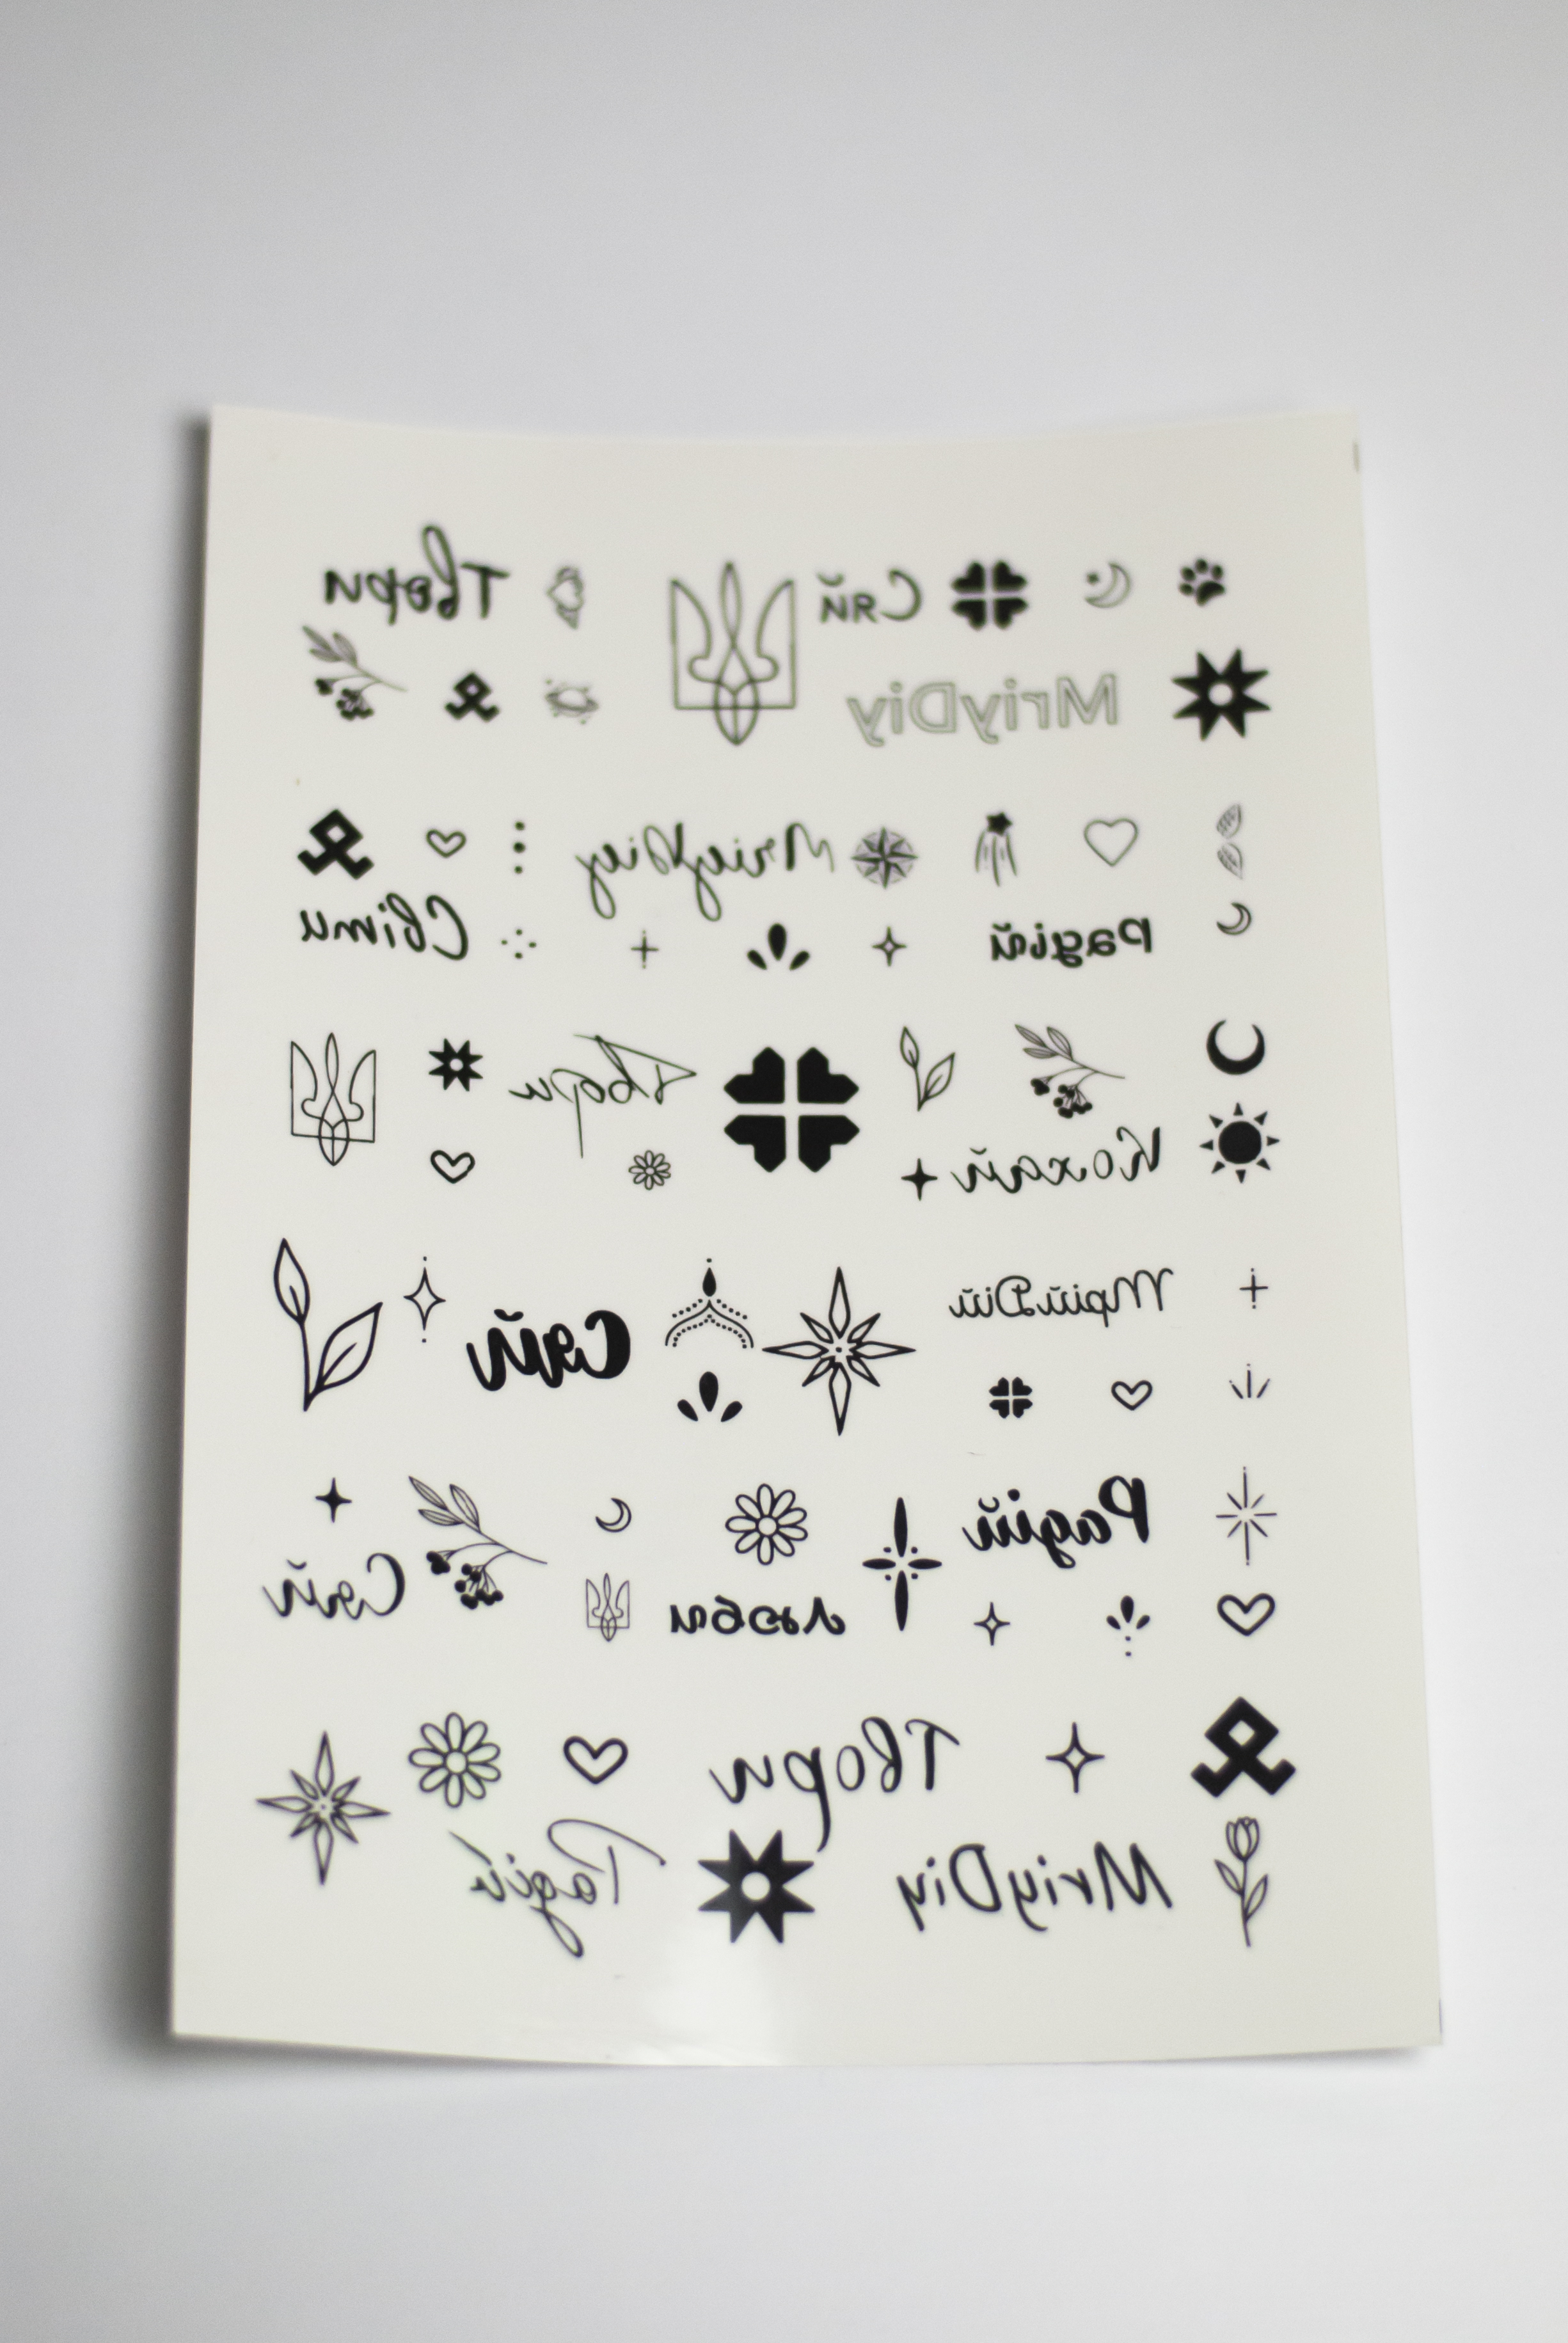 Твори
Сяй
MriyDiy
MriyDiy
Світи
Радій
Твори
Кохай
Сяй
МрійДій
Радій
Сяй
люби
Твори
Радій
MriyDiy